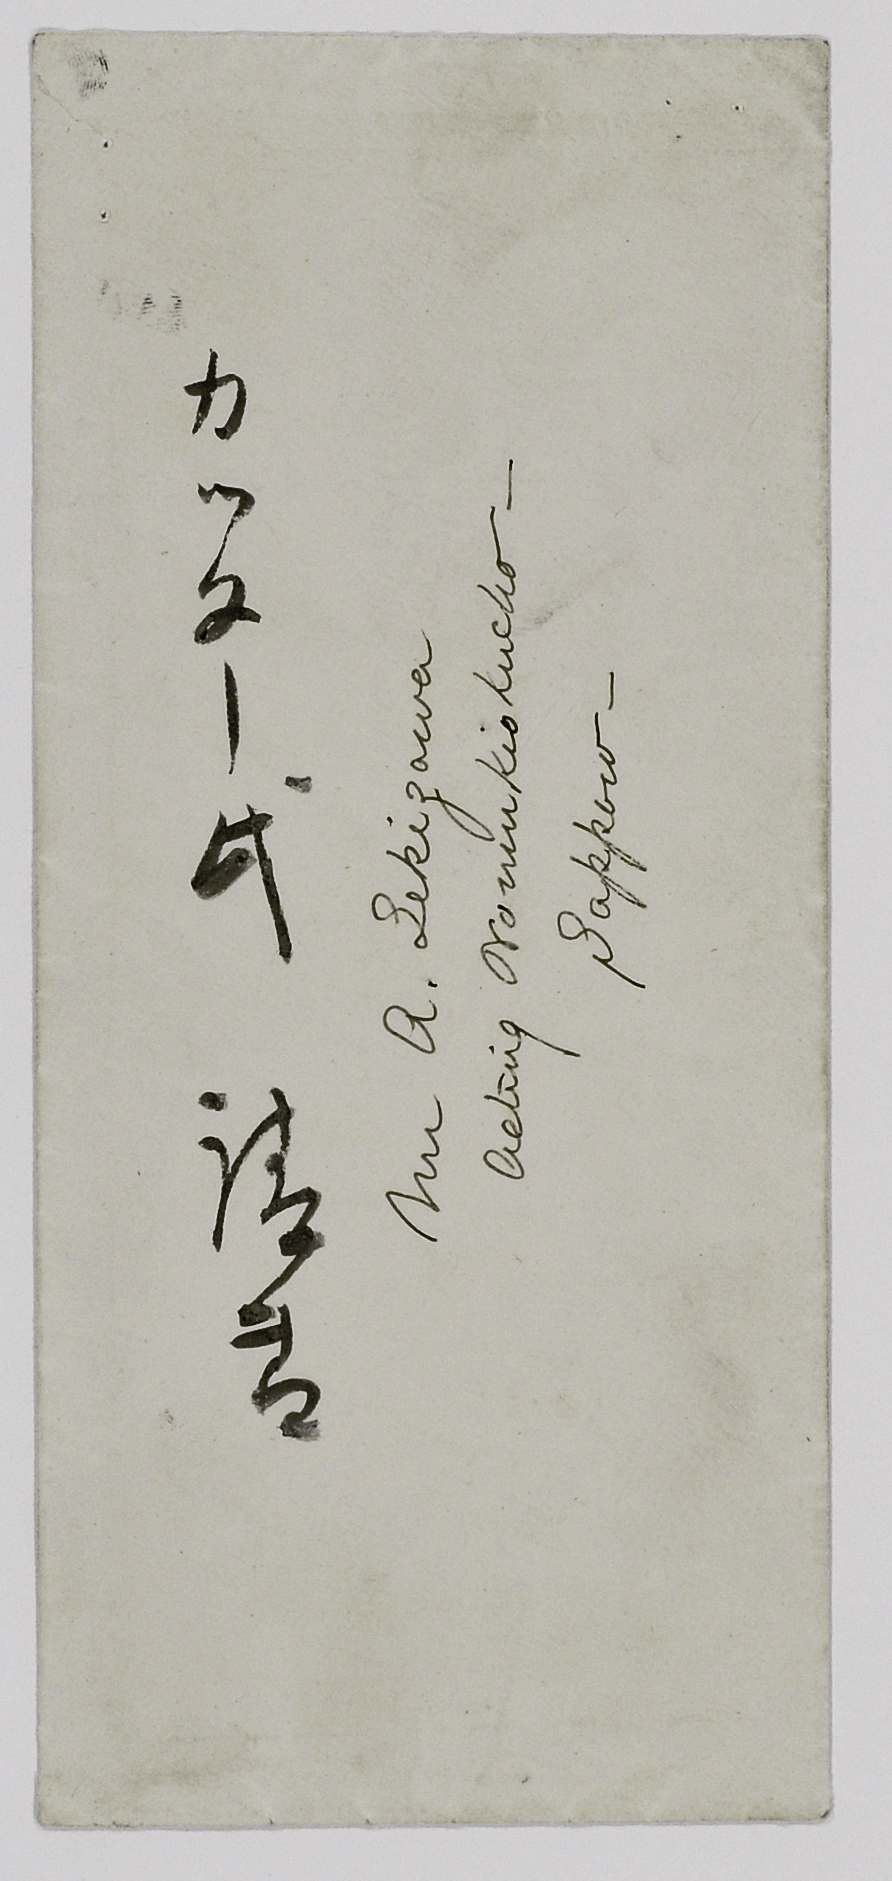 カッター氏 請書
Mr A. Sekizawa
Acting Nomukiokucho –
Sappow –